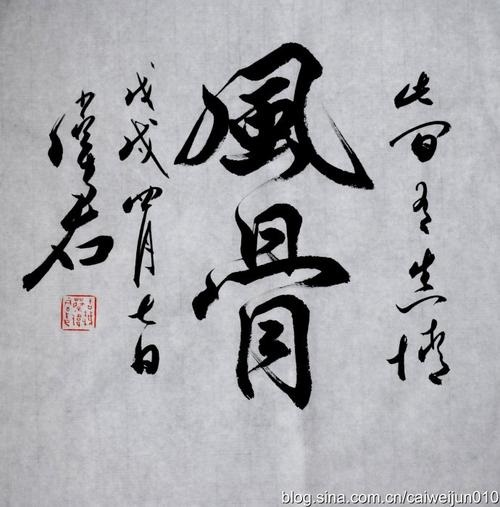 此間有真情
風骨
戊戌四月七日
君
blog.sina.com.cn/caiweijun010